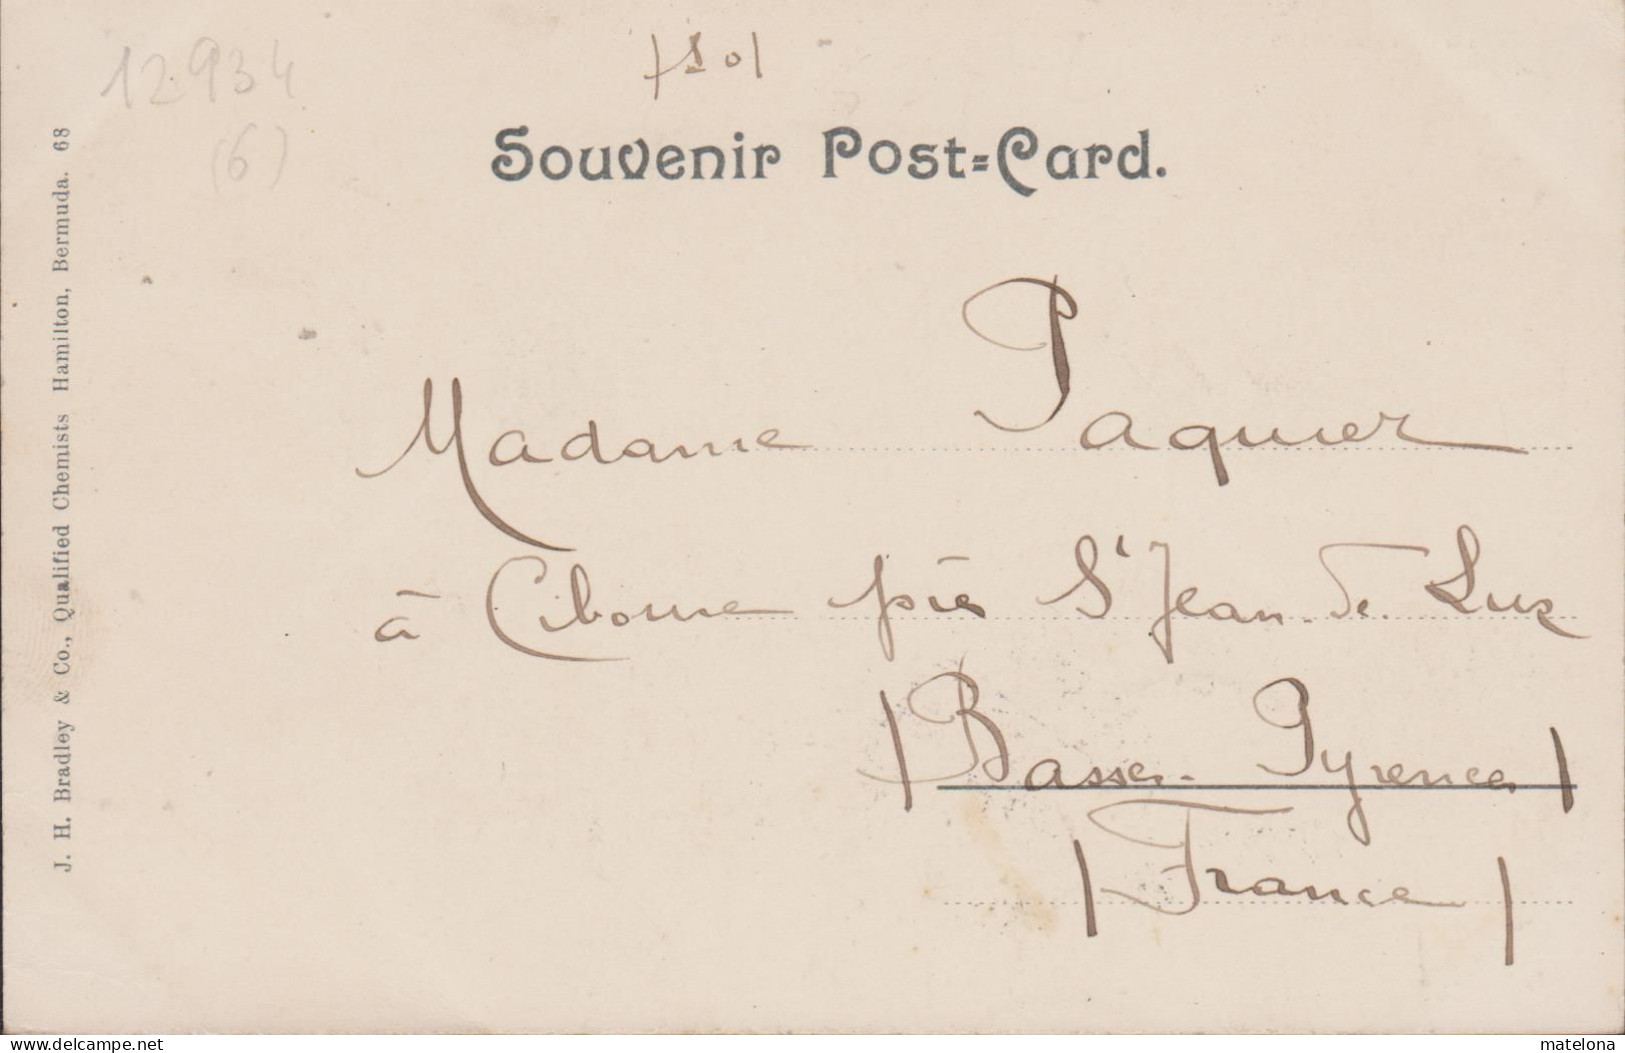 12934
(6)
Souvenir Post=Card.
J. H. Bradley & Co., Qualified Chemists Hamilton, Bermuda. 68
Madame Paquier
à Ciboure près St Jean-de-Luz
(Basses-Pyrenées)
(France)
delcampe.net
matelona